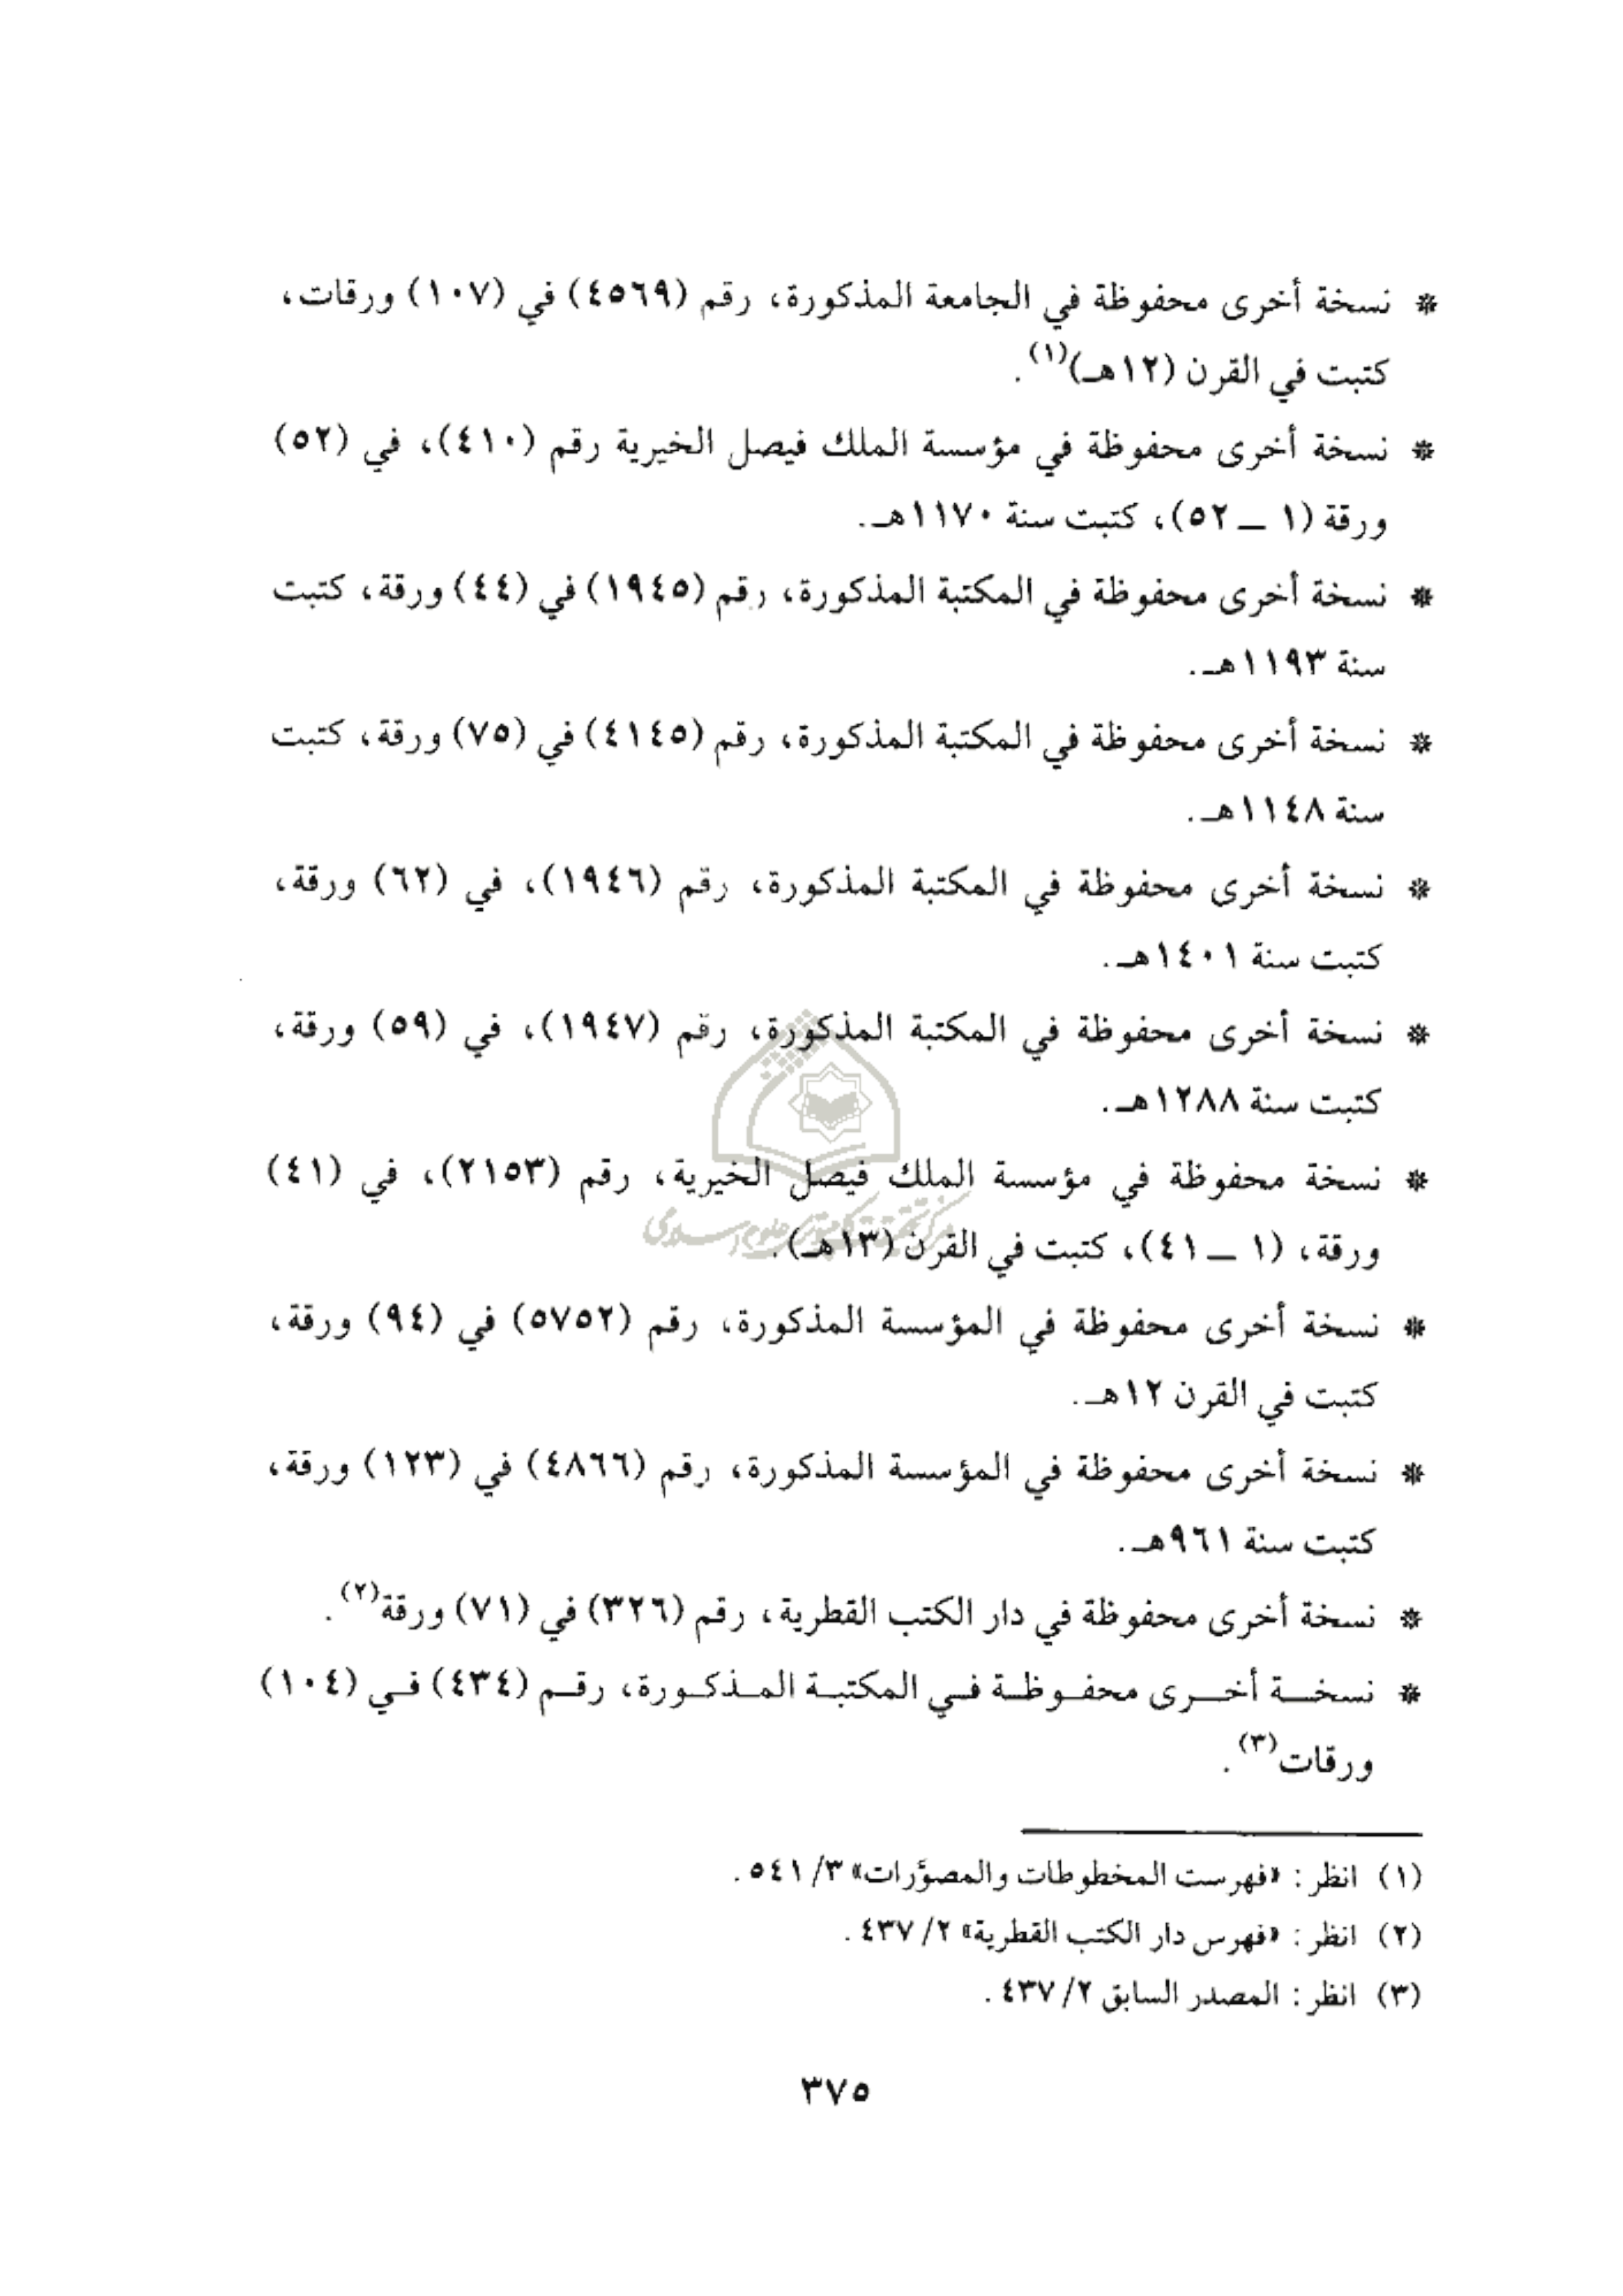 * نسخة أخرى محفوظة في الجامعة المذكورة، رقم (٤٥٦٩) في (١٠٧) ورقات،
كتبت في القرن (١٢هـ)(١).
* نسخة أخرى محفوظة في مؤسسة الملك فيصل الخيرية رقم (٤١٠)، في (٥٢)
ورقة (١ – ٥٢)، كتبت سنة ١١٧٠هـ.
* نسخة أخرى محفوظة في المكتبة المذكورة، رقم (١٩٤٥) في (٤٤) ورقة، كتبت
سنة ١١٩٣هـ.
* نسخة أخرى محفوظة في المكتبة المذكورة، رقم (٤١٤٥) في (٧٥) ورقة، كتبت
سنة ١١٤٨هـ.
* نسخة أخرى محفوظة في المكتبة المذكورة، رقم (١٩٤٦)، في (٦٢) ورقة،
كتبت سنة ١٤٠١هـ.
* نسخة أخرى محفوظة في المكتبة المذكورة، رقم (١٩٤٧)، في (٥٩) ورقة،
كتبت سنة ١٢٨٨هـ.
* نسخة محفوظة في مؤسسة الملك فيصل الخيرية، رقم (٢١٥٣)، في (٤١)
ورقة، (١ – ٤١)، كتبت في القرن (١٣هـ).
مرکز تحقیقات کامپیوتری علوم اسلامی
* نسخة أخرى محفوظة في المؤسسة المذكورة، رقم (٥٧٥٢) في (٩٤) ورقة،
كتبت في القرن ١٢هـ.
* نسخة أخرى محفوظة في المؤسسة المذكورة، رقم (٤٨٦٦) في (١٢٣) ورقة،
كتبت سنة ٩٦١هـ.
* نسخة أخرى محفوظة في دار الكتب القطرية، رقم (٣٢٦) في (٧١) ورقة(٢).
* نسخـة أخـرى محفـوظـة فـي المكتبـة المـذكـورة، رقـم (٤٣٤) فـي (١٠٤)
ورقات(٣).
(١) انظر: «فهرست المخطوطات والمصوَّرات» ٣/ ٥٤١.
(٢) انظر: «فهرس دار الكتب القطرية» ٢/ ٤٣٧.
(٣) انظر: المصدر السابق ٢/ ٤٣٧.
٣٧٥